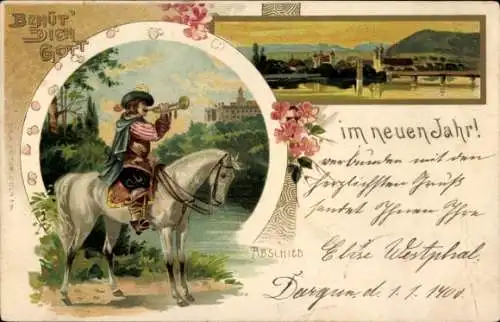 BEHÜT'
DICH
GOTT
im neuen Jahr!
verbunden mit den
herzlichsten Gruß
sendet Ihnen Ihre
ABSCHIED
Elise Westphal.
Dargun, d. 1. 1. 1900.